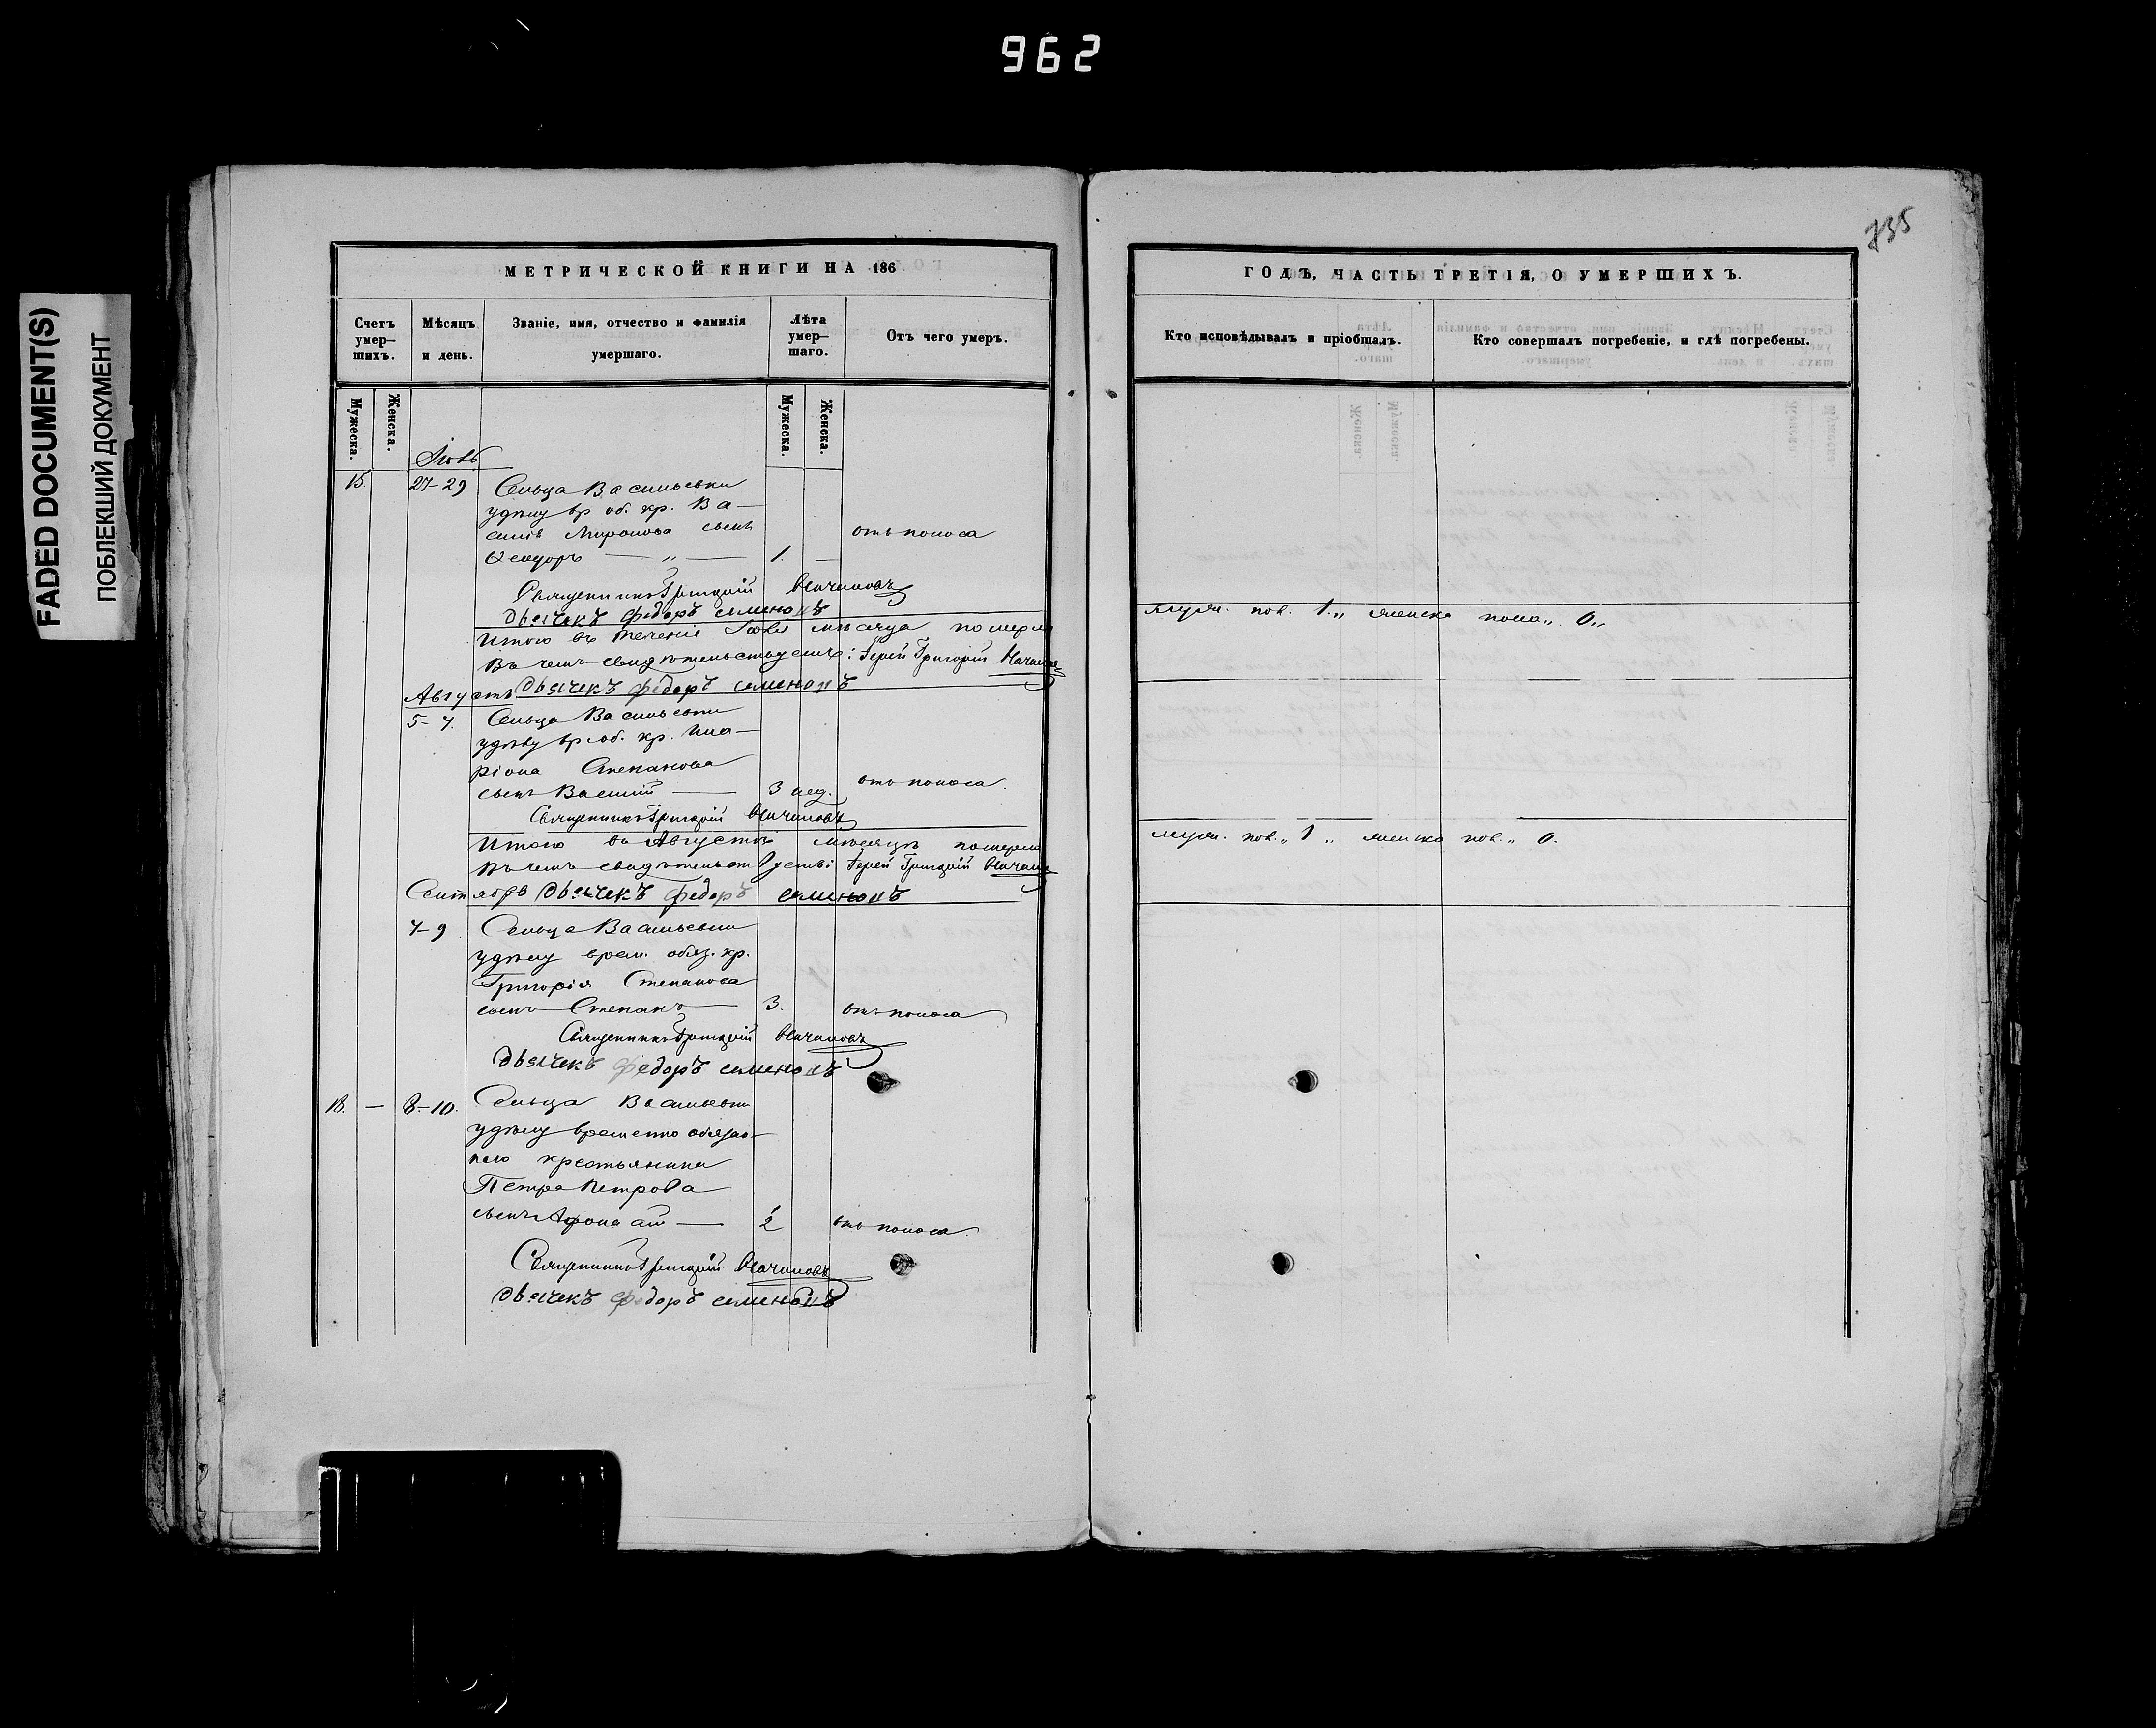 962
FADED DOCUMENT(S)
ПОБЛЕКШИЙ ДОКУМЕНТ
735
МЕТРИЧЕСКОЙ КНИГИ НА 186
Счетъ умер-шихъ.
Мѣсяцъ и день.
Званіе, имя, отчество и фамилія умершаго.
Лѣта умер-шаго.
Отъ чего умеръ.
Мужеска.
Женска.
Мужеска.
Женска.
15. 27-29 Сельца Васильевки
вр об. кр. Ва-
силія Миронова сынъ
Ѳеодоръ — „ — 1. —
отъ поноса
Священникъ Григорій
дьячекъ федоръ семеновъ
Итого въ теченіе Іюля мѣсяца померло
Въ чемъ свидѣтельствуемъ: Іерей Григорій
Августъ дьячекъ федоръ семеновъ
5-7. Сельца Васильевки
вр. об. кр. Ила-
ріона Степанова
сынъ Василій — 3 нед. отъ поноса.
Священникъ Григорій
Итого въ Августѣ мѣсяцѣ померло
Въ чемъ Іерей Григорій
Сентябрь дьячекъ федоръ семеновъ
7-9 Сельца Васильевки
врем. обяз. кр.
Григорія Степанова
сынъ Степанъ — 3. отъ поноса
Священникъ Григорій
дьячекъ федоръ семеновъ
18. — 8-10. Сельца Васильевки
временно обязан-
наго крестьянина
Петра Петрова
сынъ — 2 отъ поноса.
Священникъ Григорій
дьячекъ федоръ семеновъ
ГОДЪ, ЧАСТЬ ТРЕТІЯ, О УМЕРШИХЪ.
Кто исповѣдывалъ и пріобщалъ.
Кто совершалъ погребеніе, и гдѣ погребены.
муж. пол. 1 „ женска пола „ 0 „
муж. пол. „ 1 „ женска пол. „ 0.